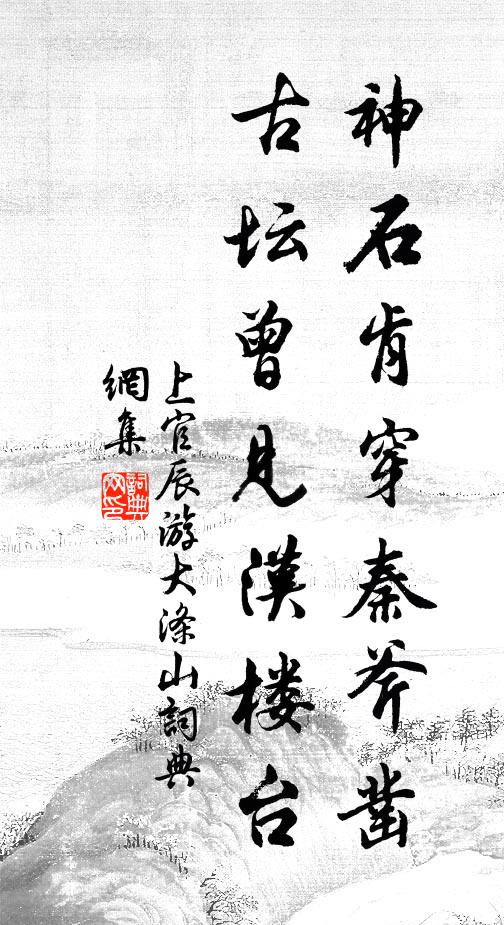 神石肯穿秦斧凿
古坛曾见汉楼台
上官辰游大涤山詞典
網集
詞典
网印